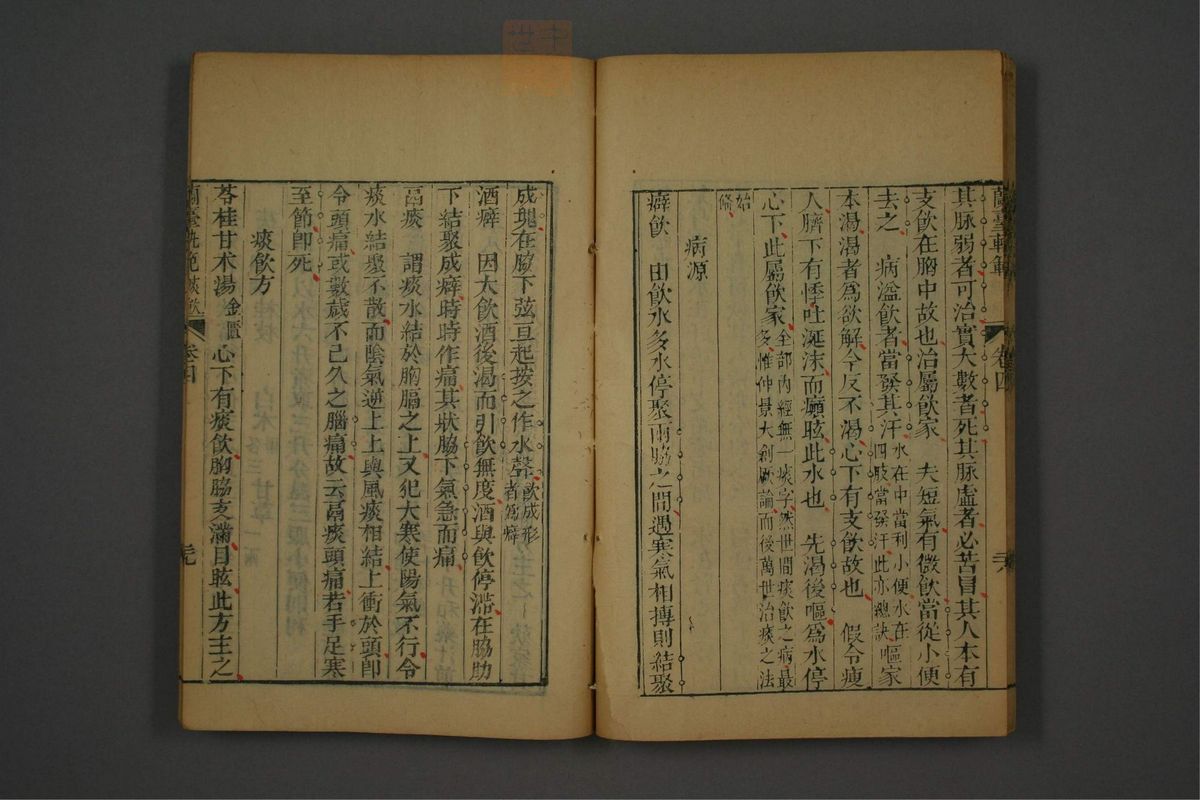 蘭臺軌範 卷四
其脉弱者可治實大數者死其脉虛者必苦冒其人本有
支飲在胸中故也治屬飲家 夫短氣有微飲當從小便
去之 病溢飲者當發其汗水在中當利小便水在四肢當發汗此亦總訣嘔家
本渴渴者爲欲解今反不渴心下有支飲故也 假令瘦
人臍下有悸吐涎沫而癲眩此水也 先渴後嘔爲水停
心下此屬飲家全部內經無一痰字然世間痰飲之病最多惟仲景大創厥論而後萬世治痰之法
始備
病源
癖飲 由飲水多水停聚兩脇之間遇寒氣相搏則結聚
成塊在脇下弦亘起按之作水聲飲成形者爲癖
酒癖 因大飲酒後渴而引飲無度酒與飲停滯在脇肋
下結聚成癖時時作痛其狀脇下氣急而痛
鬲痰 謂痰水結於胸膈之上又犯大寒使陽氣不行令
痰水結聚不散而陰氣逆上上與風痰相結上衝於頭卽
令頭痛或數歲不已久之腦痛故云鬲痰頭痛若手足寒
至節卽死
痰飲方
苓桂甘术湯金匱 心下有痰飲胸脇支滿目眩此方主之
卷四